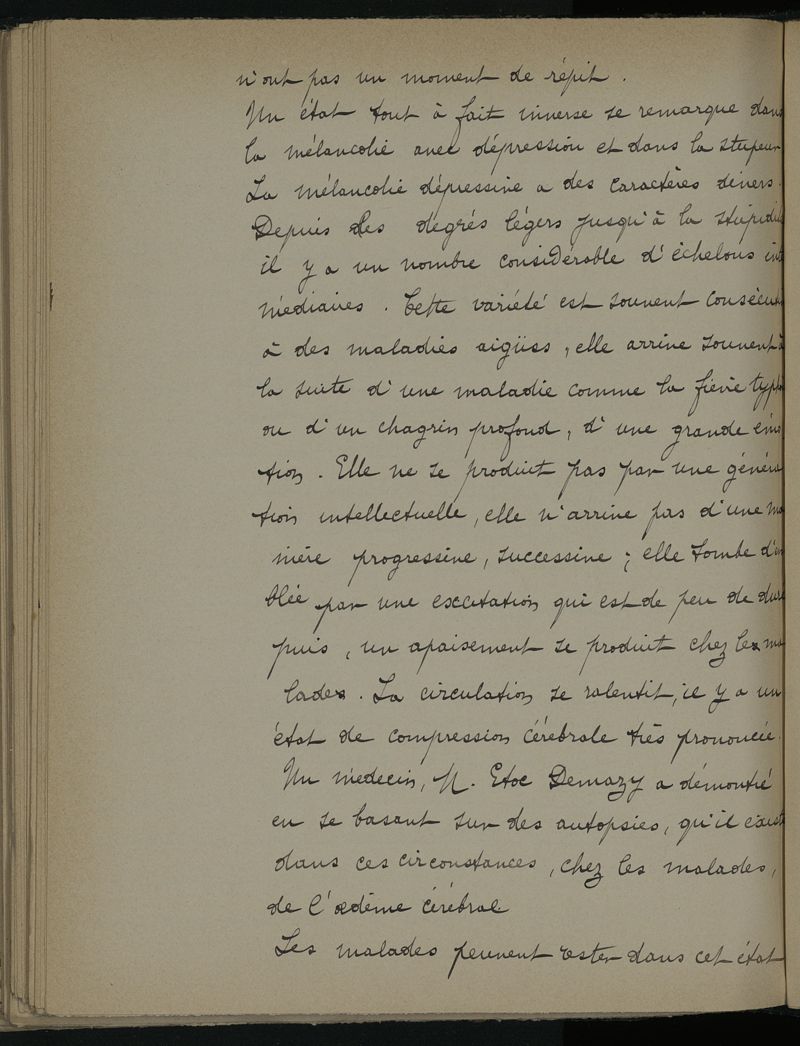 n'ont pas un moment de répit.
Un état tout à fait inverse se remarque dans
la mélancolie avec dépression et dans la stupeur
La mélancolie dépressive a des caractères divers.
Depuis des degrés légers jusqu'à la stupidi
il y a un nombre considérable d'échelons int
médiaires. Cette variété est souvent consécut
à des maladies aigües, elle arrive souvent à
la suite d'une maladie comme la fièvre typh
ou d'un chagrin profond, d'une grande émo
tion. Elle ne se produit pas par une généra
tion intellectuelle, elle n'arrive pas d'une ma
nière progressive, successive ; elle tombe d'em
blée par une excitation qui est de peu de duré
puis, un apaisement se produit chez les ma
lades. La circulation se ralentit, il y a un
état de compression cérébrale très prononcée.
Un médecin, M. Etoc Demazy a démontré
en se basant sur des autopsies, qu'il exist
dans ces circonstances, chez les malades,
de l'œdème cérébral
Les malades peuvent rester dans cet état